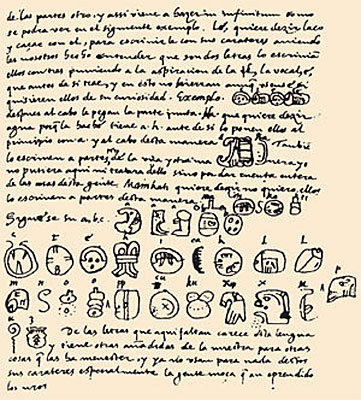 de las partes otro, y assi viene a hazer in infinitum como
se podra ver en el siguiente exemplo. Lé, quiere dezir laço
y caçar con el, para escrivirle con sus carateres aviendo
les nosotros hecho entender que son dos letras lo escrivian
ellos con tres puniendo a la aspiracion de la l, la vocal e,
que antes de si trae, y en esto no hierran
quisieren ellos de su curiosidad. Exemplo.
despues al cabo le pegan la parte junta. Ha que quiere dezir
agua porq̃ la haché tiene a h. ante de si lo ponen ellos al
principio con a y al cabo desta manera Tambiẽ
lo escriven a partes de la una y otra manera yo
no pusiera aqui ni tratara dello sino por dar cuenta entera
de las cosas desta gente. quiere dezir no quiero, ellos
lo escriven a partes desta manera
Siguese su a, b, c.
ca k l
m n o o pp cu ku x x u
z
De las letras que aqui faltan carece esta lengua
y tiene otras añadidas de la nuestra para otras
cosas q̃ las ha menester, y ya no usan para nada destos
sus carateres especialmente la gente moça q̃ an aprendido
los nros